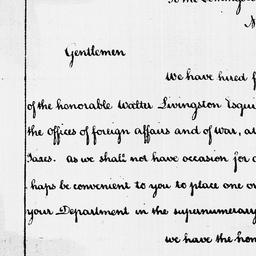 To the Commissio
N
Gentlemen
We have hired f
of the honorable Walter Livingston Esqui
the offices of foreign affairs and of war, at
Taxes. as we shall not have occasion for a
haps be convenient to you to place one or
your Department in the supernumerary
we have the hon